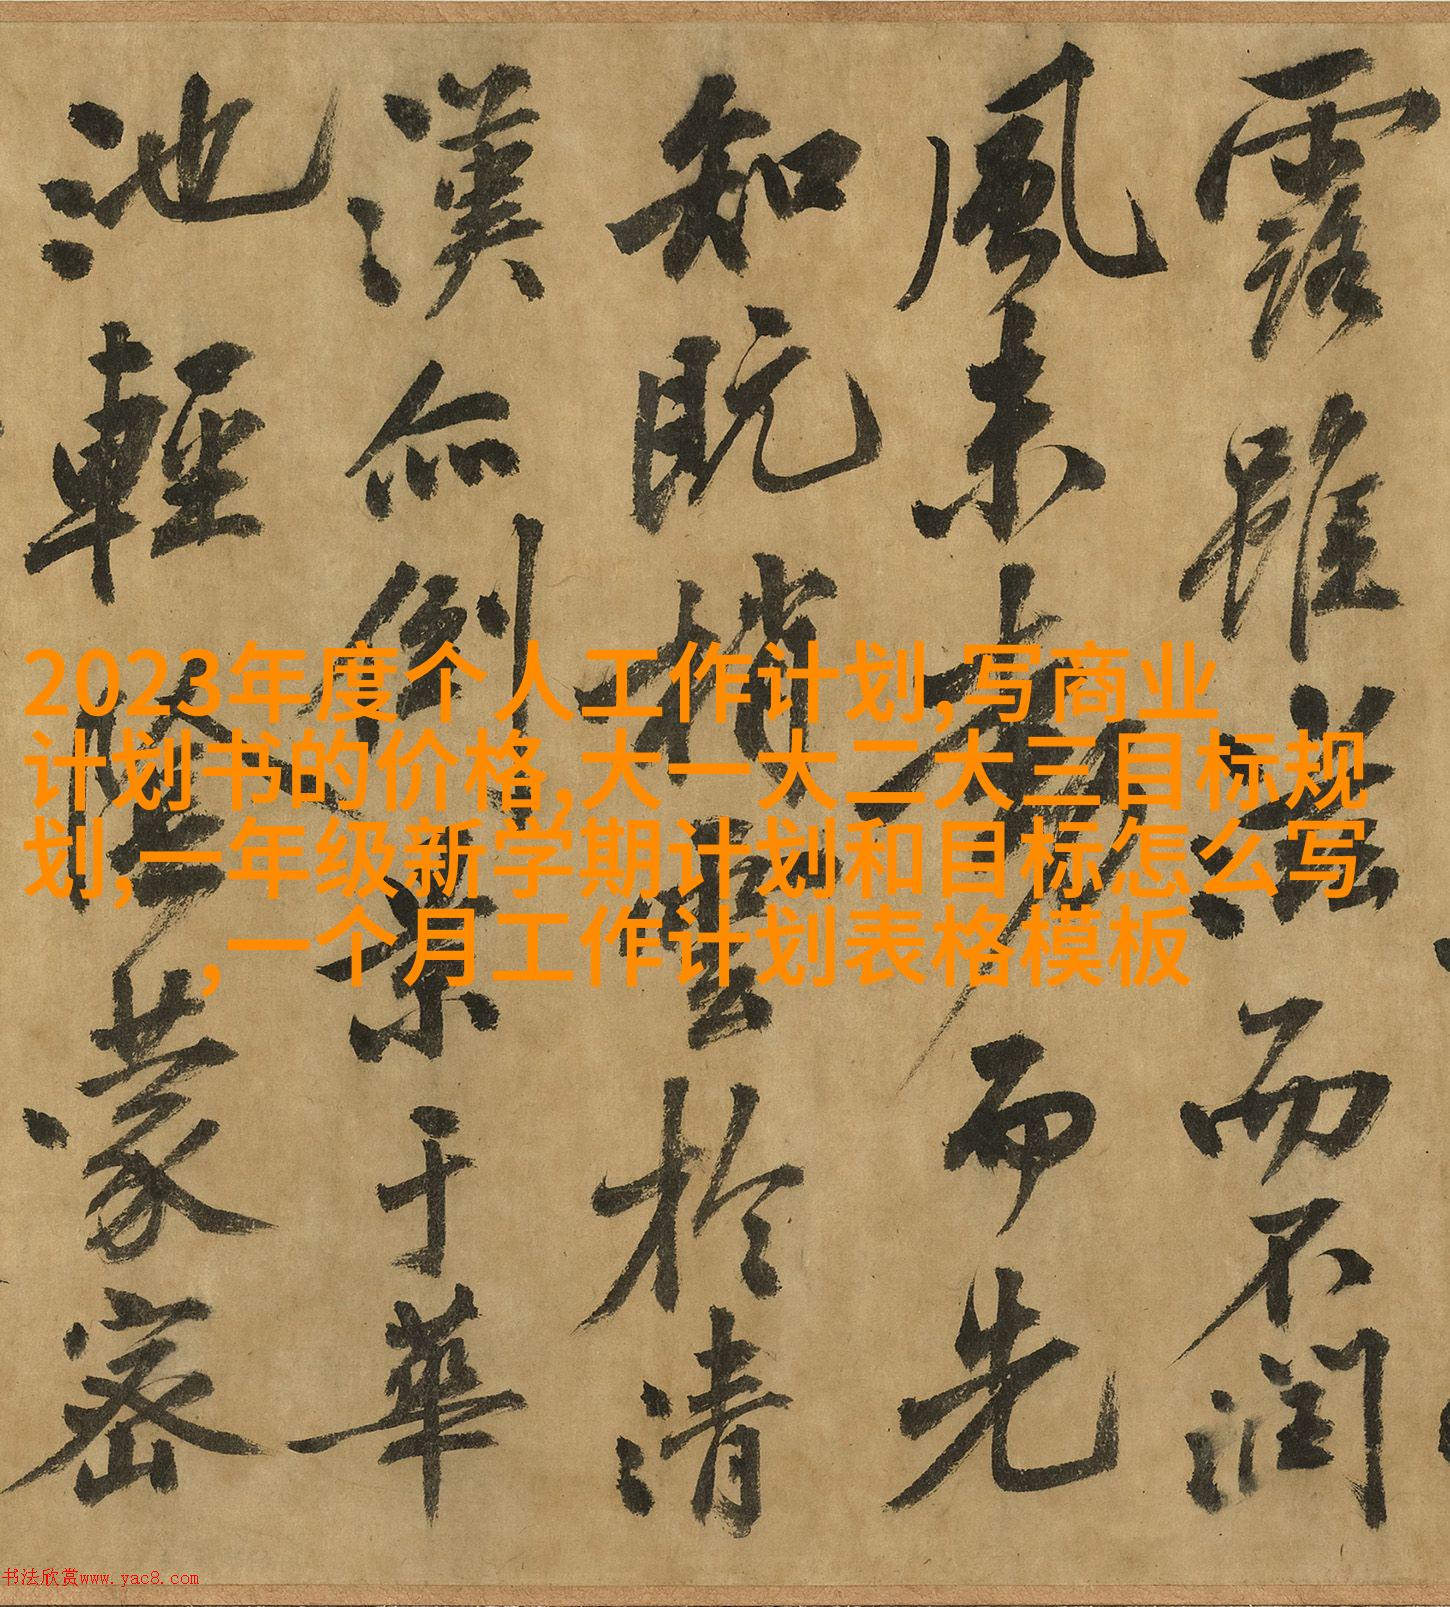 露雖而不潤
風未而先
知既梢雲於清
漢亦倒景于華
池輕陰蒙密
2023年度个人工作计划,写商业
计划书的价格,大一大二大三目标规
划,一年级新学期计划和目标怎么写
,一个月工作计划表格模板
书法欣赏www.yac8.com